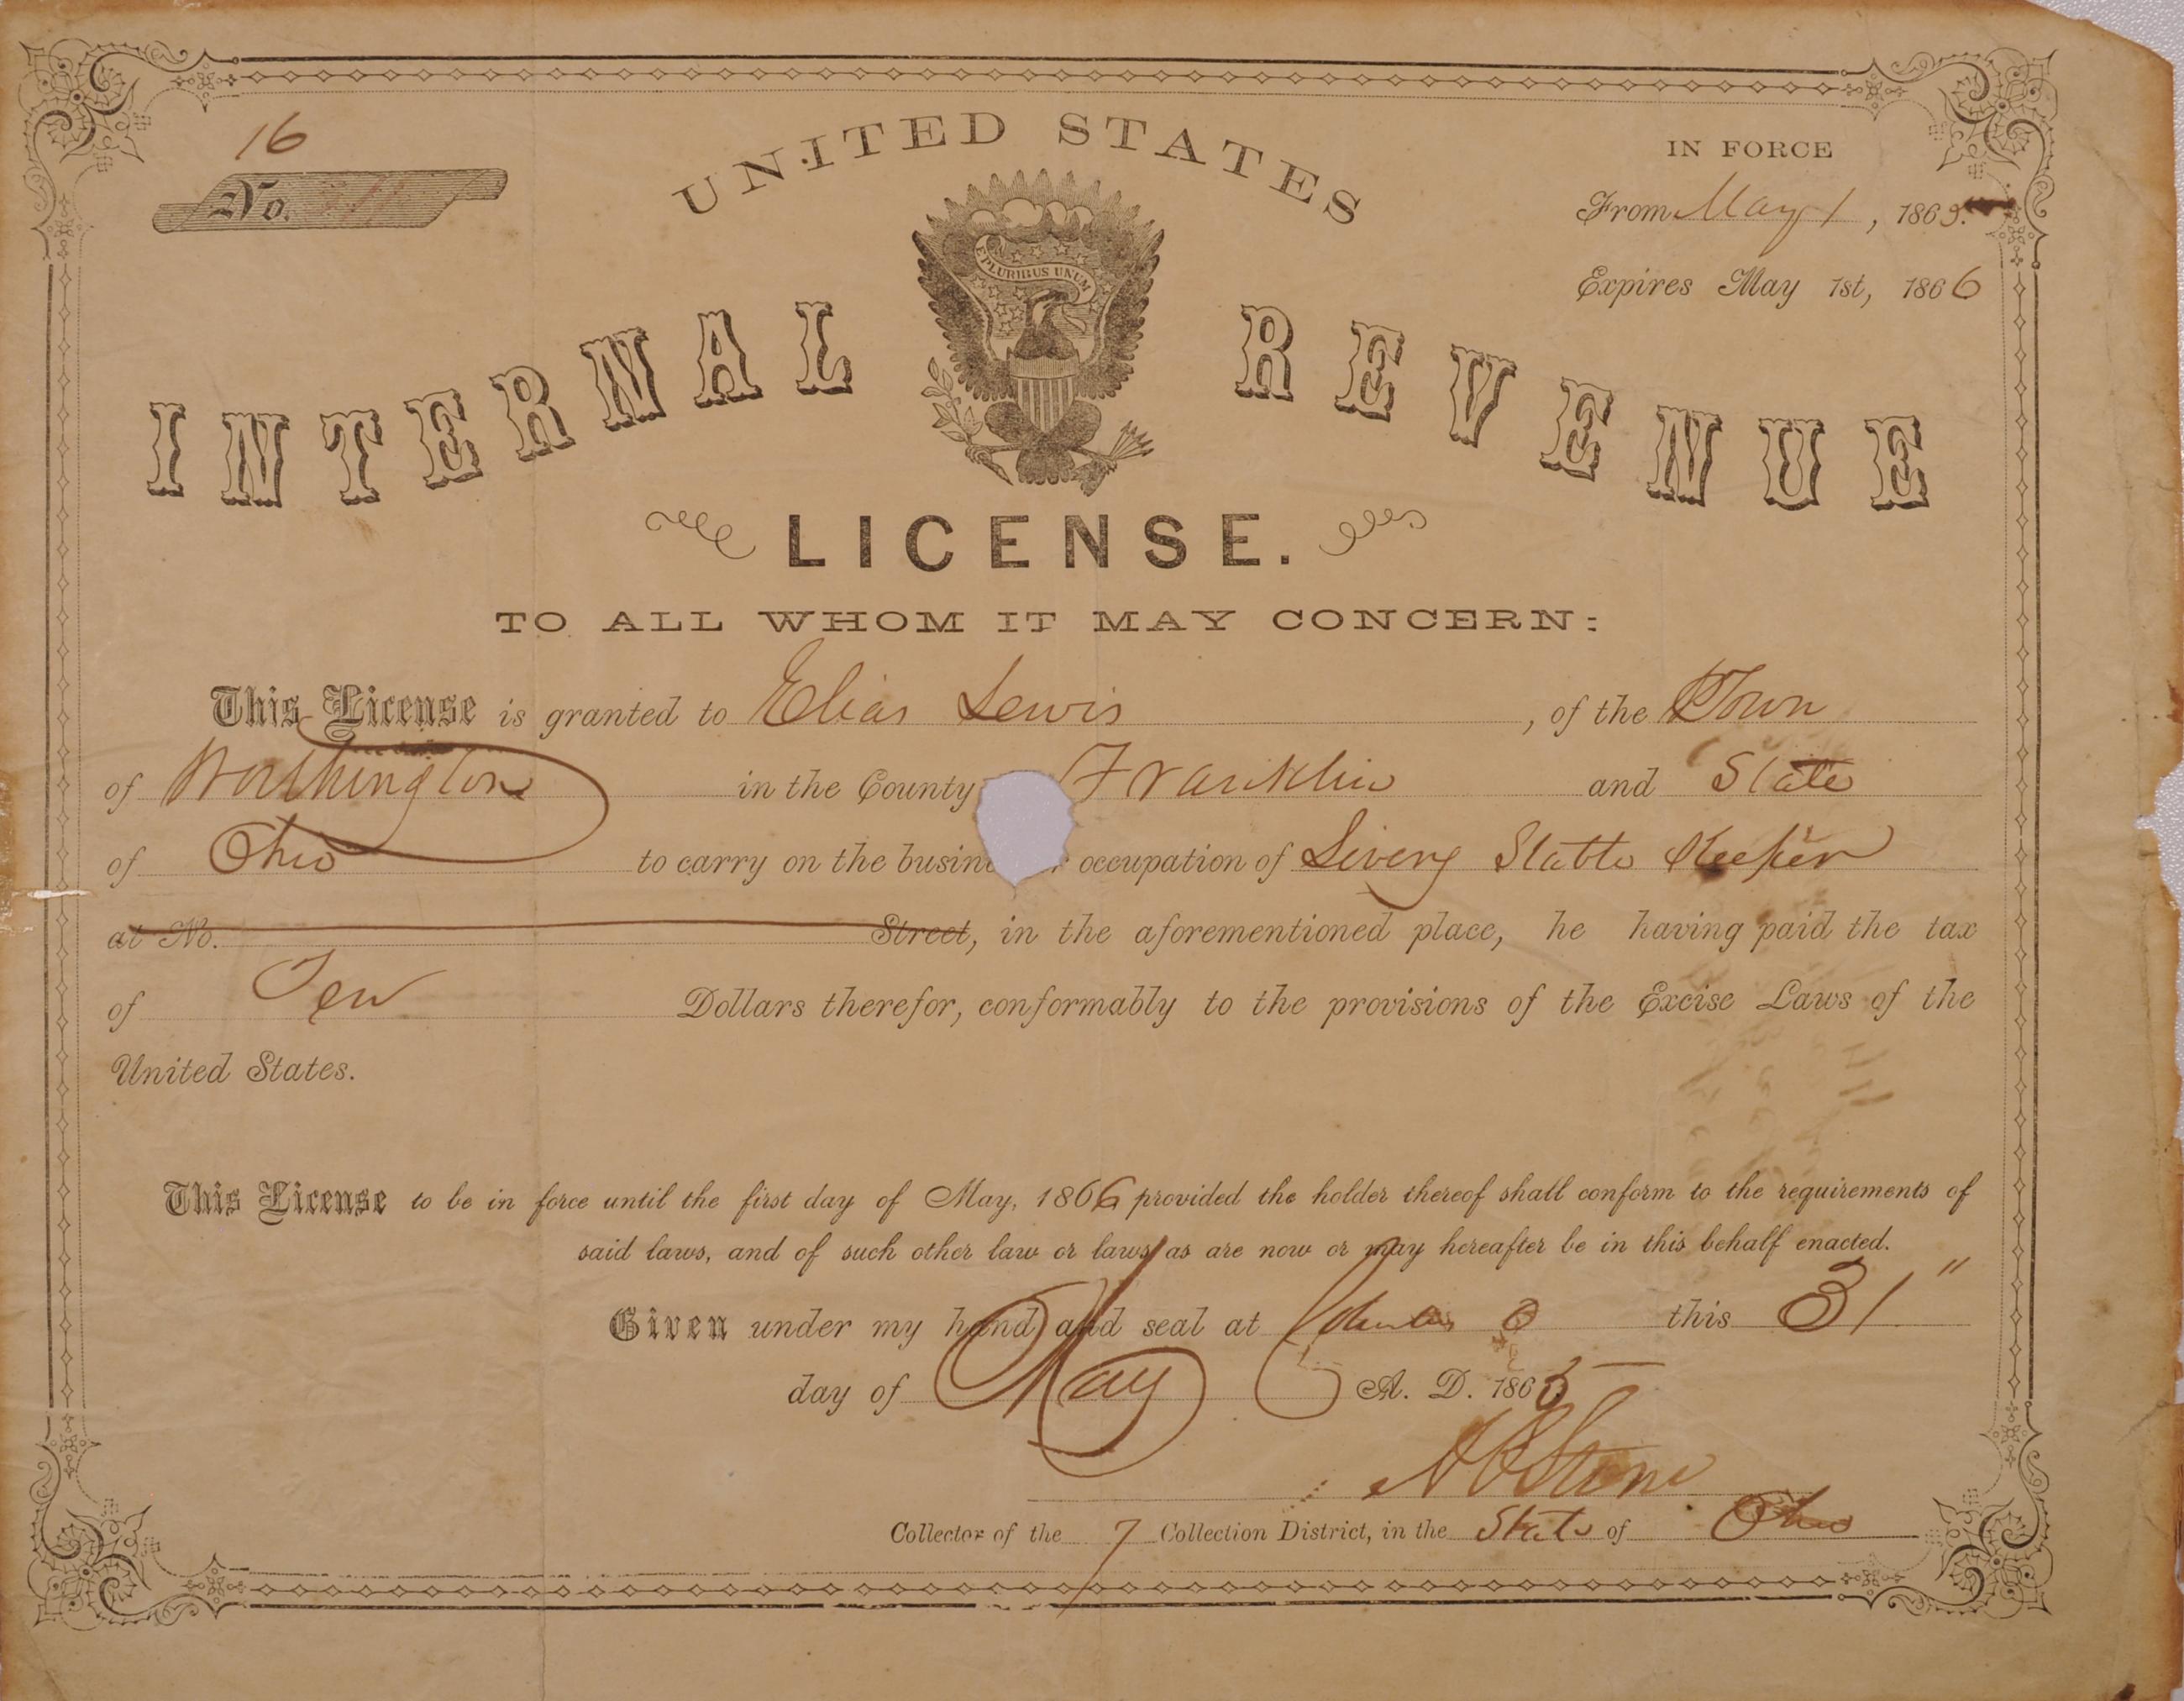 16
No.
UNITED STATES
IN FORCE
From May 1, 1865
Expires May 1st, 1866
E PLURIBUS UNUM
INTERNAL REVENUE
LICENSE.
TO ALL WHOM IT MAY CONCERN:
This License is granted to Elias Lewis, of the Town
of Worthington in the County Franklin and State
of Ohio to carry on the busine occupation of Livery Stable Keeper
at No. Street, in the aforementioned place, he having paid the tax
of Ten Dollars therefor, conformably to the provisions of the Excise Laws of the
United States.
This License to be in force until the first day of May, 1866 provided the holder thereof shall conform to the requirements of
said laws, and of such other law or laws as are now or may hereafter be in this behalf enacted.
Given under my hand and seal at Columbus O this 31"
day of May A. D. 1865
Collector of the 7 Collection District, in the State of Ohio